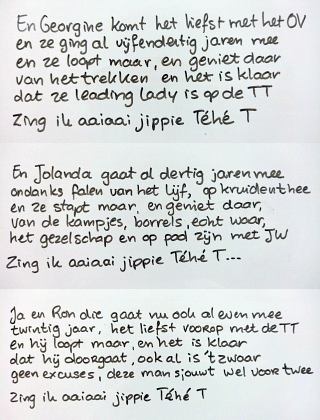 En Georgine komt het liefst met het OV
en ze ging al vijfendertig jaren mee
en ze loopt maar, en geniet daar
van het trekken en het is klaar
dat ze leading lady is op de TT
Zing ik aaiaai jippie Téhé T
En Jolanda gaat al dertig jaren mee
ondanks falen van het lijf, op kruidenthee
en ze stapt maar, en geniet daar,
van de kampjes, borrels, echt waar,
het gezelschap en op pad zijn met JW
Zing ik aaiaai jippie Téhé T...
Ja en Ron die gaat nu ook al even mee
twintig jaar, het liefst voorop met de TT
en hij loopt maar, en het is klaar
dat hij doorgaat, ook al is 't zwaar
geen excuses, deze man sjouwt wel voor twee
Zing ik aaiaai jippie Téhé T